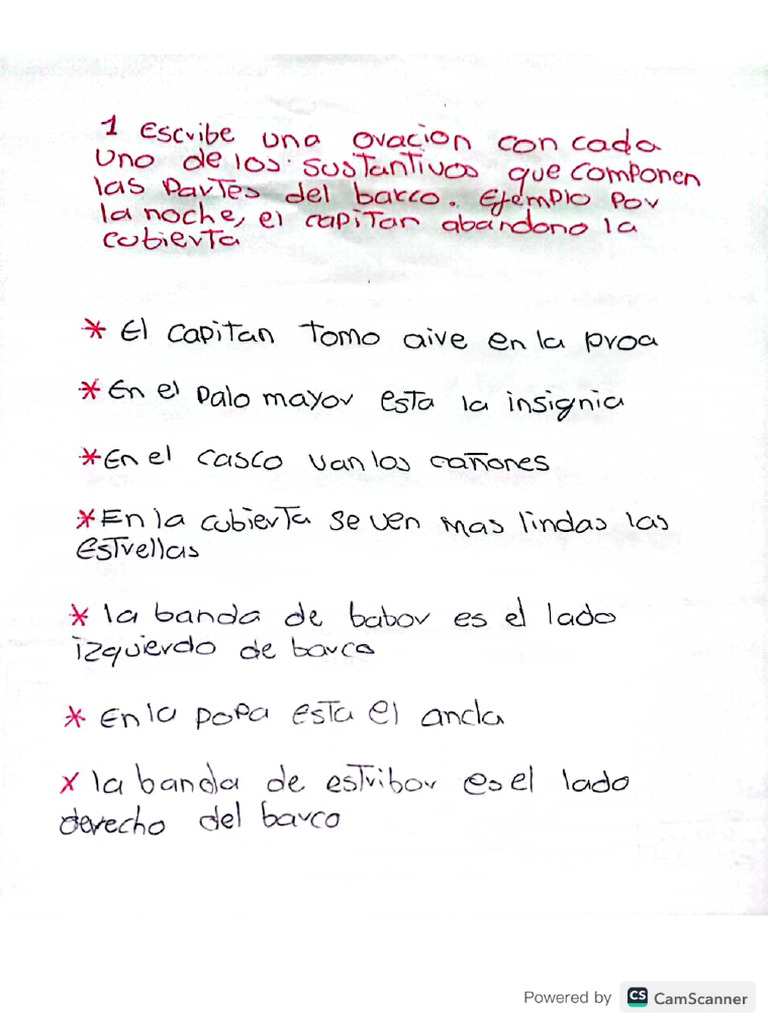 1 Escribe una oracion con cada
uno de los sustantivos que componen
las Partes del barco. Ejemplo Por
la noche, el capitan abandono la
cubierta
* El capitan Tomo aire en la proa
* En el Palo mayor esta la insignia
* En el casco van los cañones
* En la cubierta se ven mas lindas las
Estrellas
* la banda de babor es el lado
izquierdo de barco
* En la popa esta el ancla
x la banda de estribor es el lado
derecho del barco
Powered by CS CamScanner